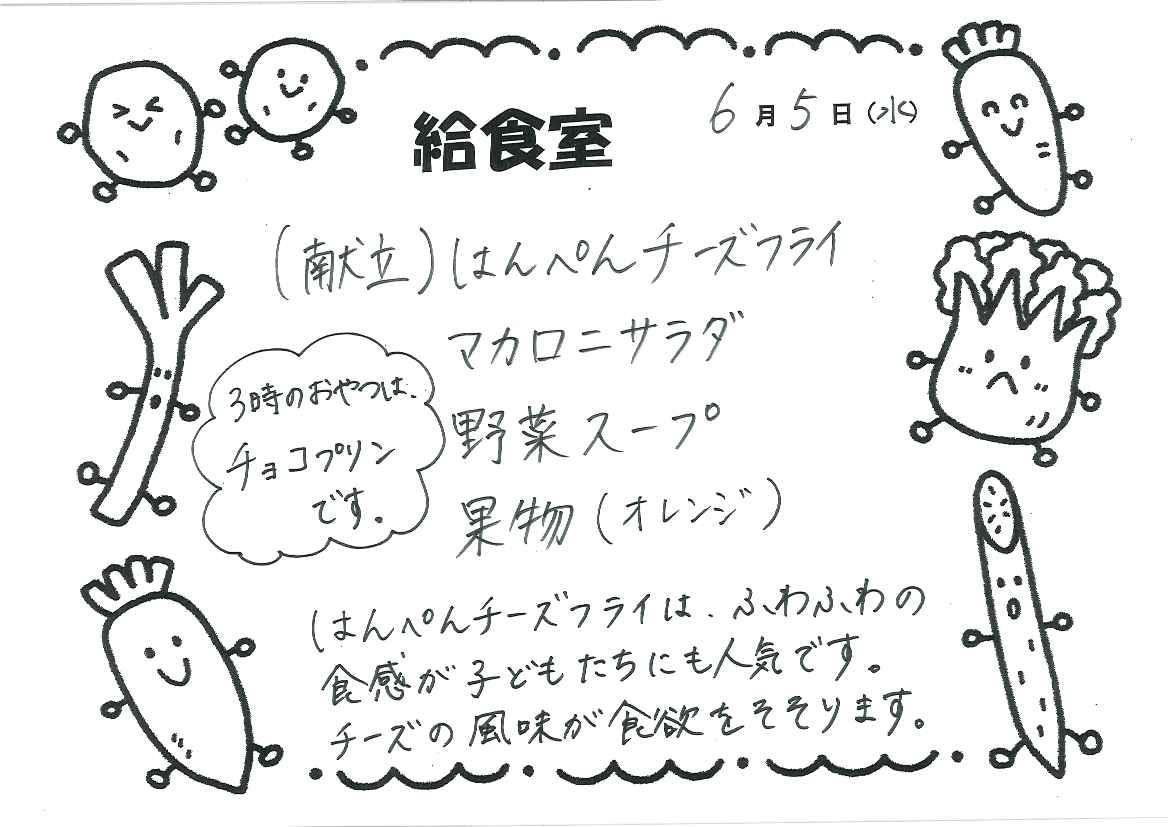 給食室
6月5日(水)
(献立)はんぺんチーズフライ
マカロニサラダ
野菜スープ
果物(オレンジ)
3時のおやつは、
チョコプリン
です。
はんぺんチーズフライは、ふわふわの
食感が子どもたちにも人気です。
チーズの風味が食欲をそそります。